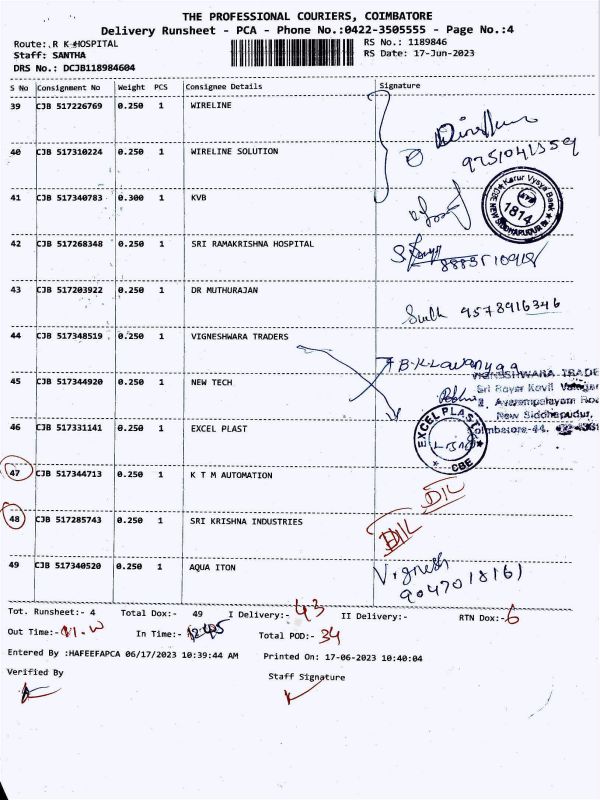 THE PROFESSIONAL COURIERS, COIMBATORE
Delivery Runsheet - PCA - Phone No.:0422-3505555 - Page No.:4
Route:.R K HOSPITAL
RS No.: 1189846
Staff: SANTHA
RS Date: 17-Jun-2023
DRS No.: DCJB118984604
S No Consignment No Weight PCS Consignee Details Signature
39 CJB 517226769 0.250 1 WIRELINE
40 CJB 517310224 0.250 1 WIRELINE SOLUTION
41 CJB 517340783 0.300 1 KVB
Karur Vysya Bank
1814
CBE NEW SIDDHAPUDUR Br.
42 CJB 517268348 0.250 1 SRI RAMAKRISHNA HOSPITAL
43 CJB 517203922 0.250 1 DR MUTHURAJAN
9578916346
44 CJB 517348519 0.250 1 VIGNESHWARA TRADERS
B.K.Lavanyaa
VIGNESHWARA TRADE
45 CJB 517344920 0.250 1 NEW TECH
Sri Rayar Kovil
Avarampalayam Roa
New Siddhapudur,
46 CJB 517331141 0.250 1 EXCEL PLAST
EXCEL PLAST
CBE
Coimbatore-44.
47 CJB 517344713 0.250 1 K T M AUTOMATION
D/L
48 CJB 517285743 0.250 1 SRI KRISHNA INDUSTRIES
D/L
49 CJB 517340520 0.250 1 AQUA ITON
Vignesh
9047018161
Tot. Runsheet:- 4 Total Dox:- 49 I Delivery:- 43 II Delivery:- RTN Dox:- 6
Out Time:- In Time:- Total POD:- 34
Entered By :HAFEEFAPCA 06/17/2023 10:39:44 AM Printed On: 17-06-2023 10:40:04
Verified By Staff Signature